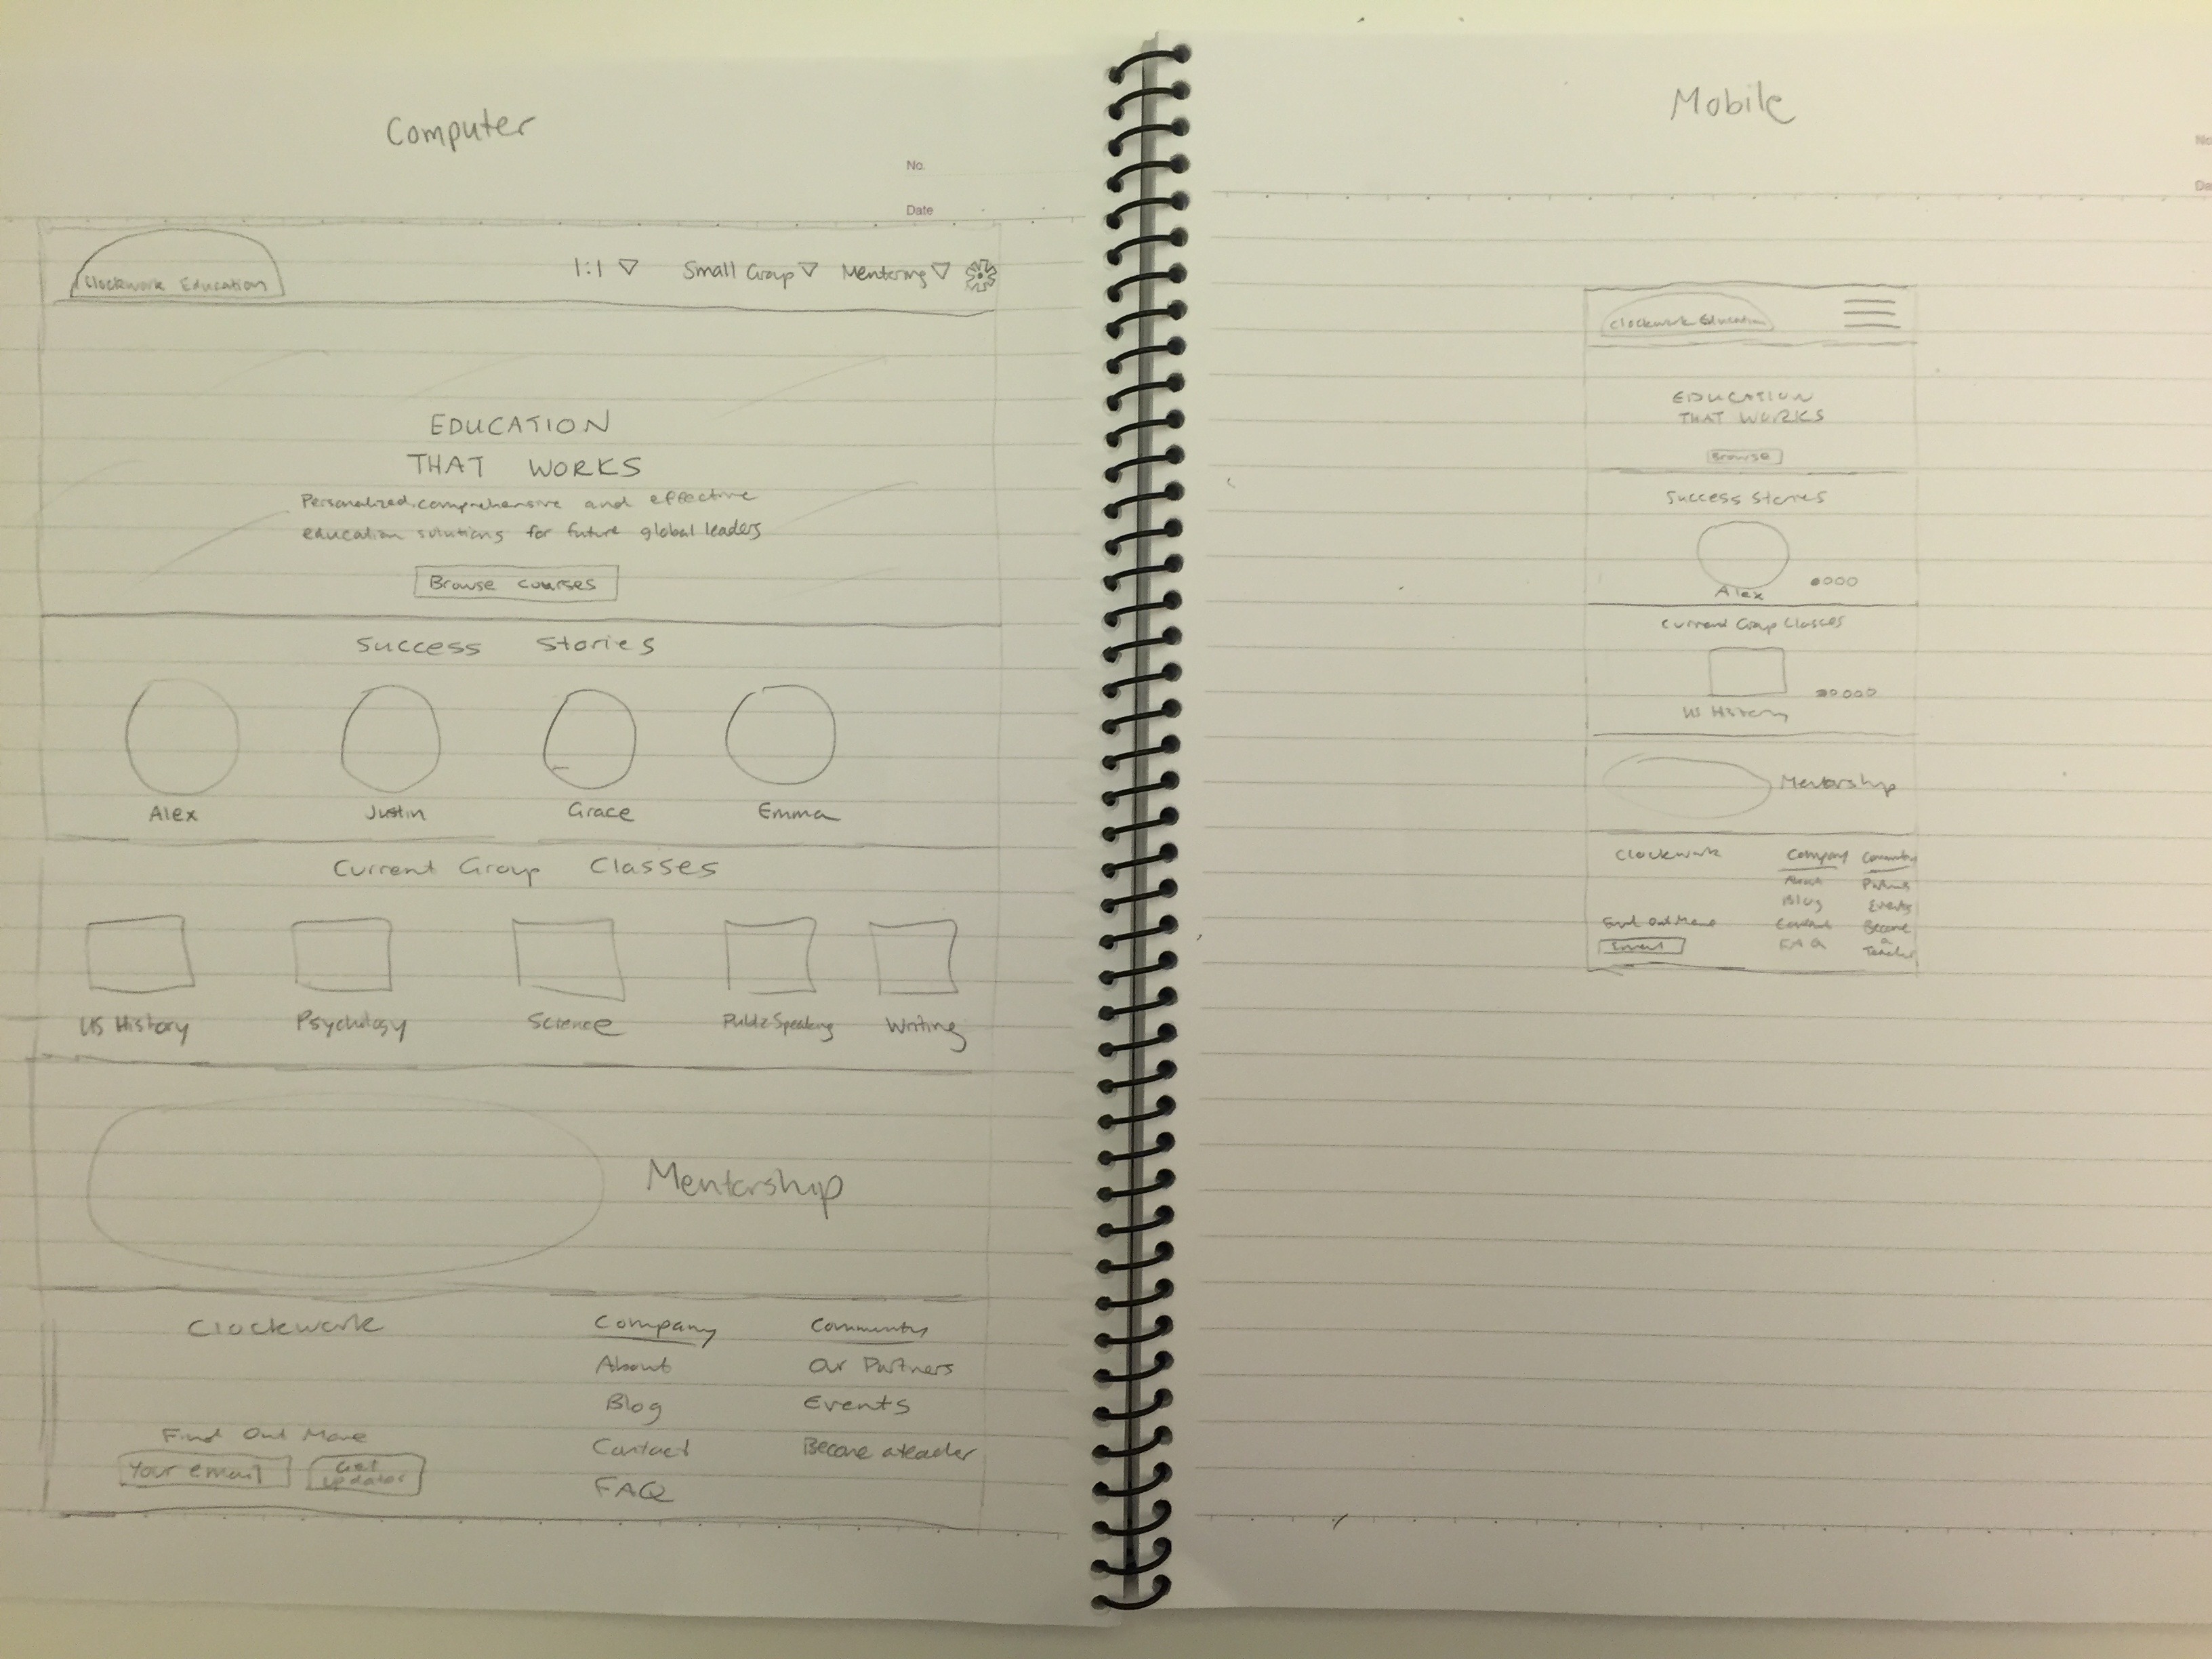 Computer
No.
Date
Clockwork Education
1:1 ▽ Small Group ▽ Mentoring ▽
EDUCATION
THAT WORKS
Personalized, comprehensive and effective
education solutions for future global leaders
Browse courses
Success Stories
Alex Justin Grace Emma
Current Group Classes
US History Psychology Science Public Speaking Writing
Mentorship
Clockwork Company Community
About Our Partners
Blog Events
Find Out More
Contact Become a teacher
Your email Get
updates
FAQ
Mobile
No
Da
Clockwork Education
EDUCATION
THAT WORKS
Browse
Success Stories
Alex
Current Group Classes
US History
Mentorship
Clockwork Company Community
About Partners
Blog Events
Find Out More Contact Become
Email FAQ a
Teacher